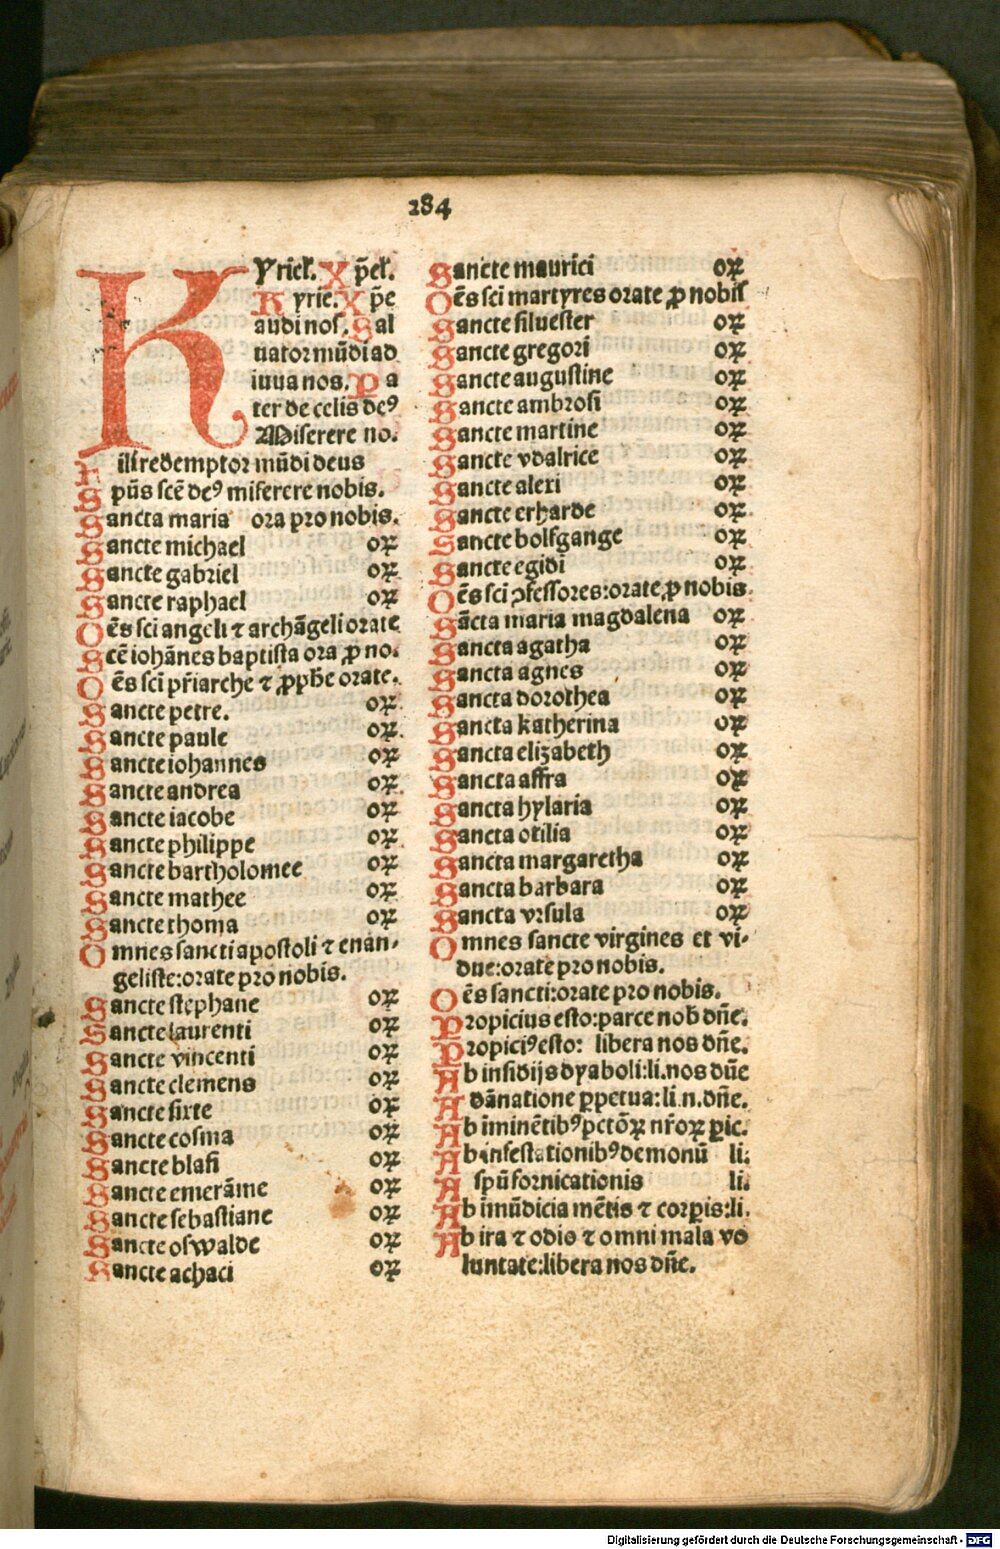 284
Kyriel̄. Xp̄el̄.
Kyrie. Xp̄e
audi nos. Sal
uator mūdi ad
iuua nos. Pa
ter de celis de⁹
Miserere no.
Fili redemptor mūdi deus
Spūs scē de⁹ miserere nobis.
Sancta maria ora pro nobis.
Sancte michael oꝝ
Sancte gabriel oꝝ
Sancte raphael oꝝ
Oēs sci angeli ⁊ archāgeli orate
Scē iohānes baptista ora ꝓ no.
Oēs sci pr̄iarche ⁊ ꝓph̄e orate.
Sancte petre. oꝝ
Sancte paule oꝝ
Sancte iohannes oꝝ
Sancte andrea oꝝ
Sancte iacobe oꝝ
Sancte philippe oꝝ
Sancte bartholomee oꝝ
Sancte mathee oꝝ
Sancte thoma oꝝ
Omnes sancti apostoli ⁊ enan-
geliste: orate pro nobis.
Sancte stephane oꝝ
Sancte laurenti oꝝ
Sancte vincenti oꝝ
Sancte clemens oꝝ
Sancte sixte oꝝ
Sancte cosma oꝝ
Sancte blasi oꝝ
Sancte emerāme oꝝ
Sancte sebastiane oꝝ
Sancte oswalde oꝝ
Sancte achaci oꝝ
Sancte maurici oꝝ
Oēs sci martyres orate ꝓ nobis
Sancte siluester oꝝ
Sancte gregori oꝝ
Sancte augustine oꝝ
Sancte ambrosi oꝝ
Sancte martine oꝝ
Sancte vdalrice oꝝ
Sancte alexi oꝝ
Sancte erharde oꝝ
Sancte bolfgange oꝝ
Sancte egidi oꝝ
Oēs sci ꝯfessores: orate ꝓ nobis.
Sācta maria magdalena oꝝ
Sancta agatha oꝝ
Sancta agnes oꝝ
Sancta dorothea oꝝ
Sancta katherina oꝝ
Sancta elizabeth oꝝ
Sancta affra oꝝ
Sancta hylaria oꝝ
Sancta otilia oꝝ
Sancta margaretha oꝝ
Sancta barbara oꝝ
Sancta vrsula oꝝ
Omnes sancte virgines et vi-
due: orate pro nobis.
Oēs sancti: orate pro nobis.
Propicius esto: parce nob̄ dn̄e.
Propici⁹ esto: libera nos dn̄e.
Ab insidijs dyaboli: li. nos dn̄e
A dānatione ꝑpetua: li. n. dn̄e.
Ab iminētib⁹ pctōꝝ nr̄oꝝ ꝑic.
Ab infestationib⁹ demonū li.
A spū fornicationis li.
Ab imūdicia mētis ⁊ corꝑis: li.
Ab ira ⁊ odio ⁊ omni mala vo
luntate: libera nos dn̄e.
Digitalisierung gefördert durch die Deutsche Forschungsgemeinschaft - DFG